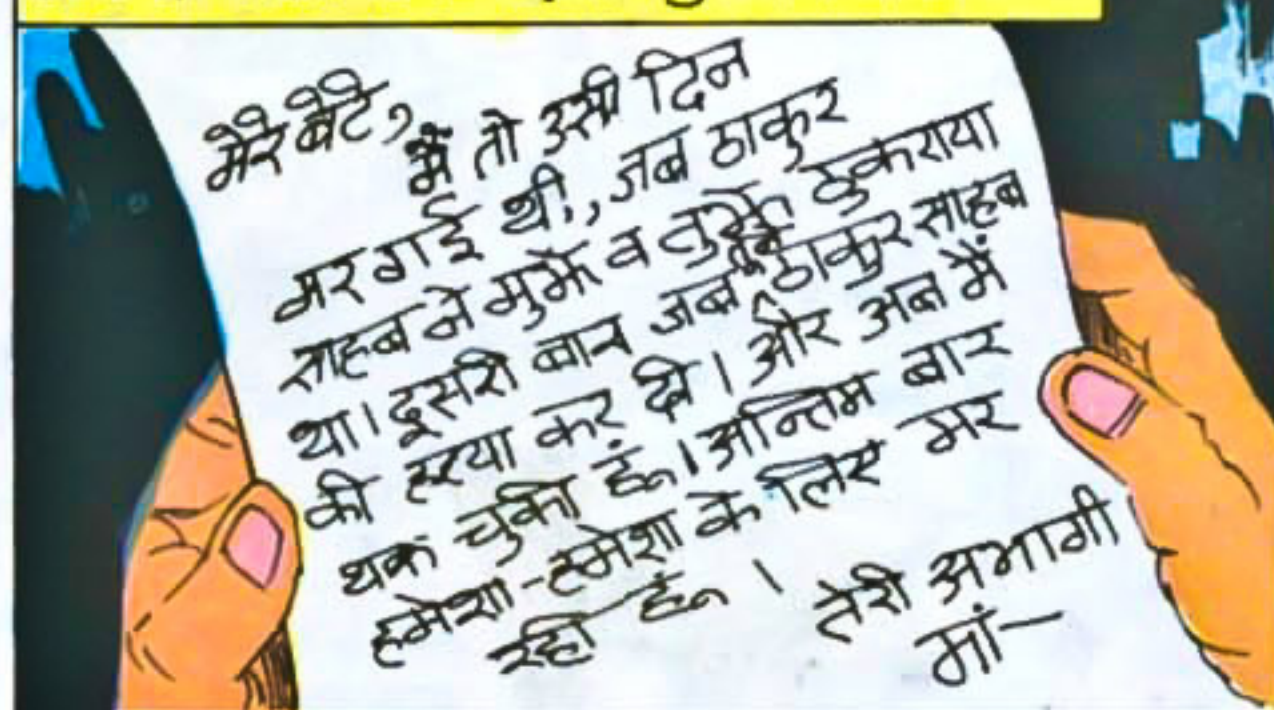 मेरे बेटे,
मैं तो उसी दिन
मर गई थी, जब ठाकुर
साहब ने मुझे व तुझे ठुकराया
था। दूसरी बार जब तूने ठाकुर साहब
की हत्या कर दी। और अब मैं
थक चुकी हूं। अन्तिम बार
हमेशा-हमेशा के लिए मर
रही हूं।
तेरी अभागी
मां—